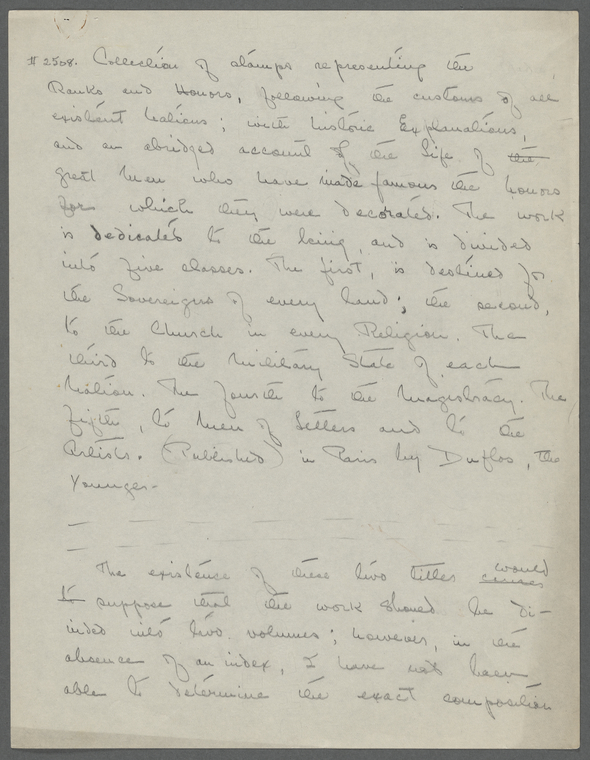 # 2508. Collection of stamps representing the
Ranks and Honors, following the customs of all
existent Nations; with historic Explanations,
and an abridged account of the life of the
great men who have made famous the honors
for which they were decorated. The work
is dedicated to the being, and is divided
into five classes. The first, is destined for
the Sovereigns of every land; the second,
to the Church in every Religion. The
third to the military State of each
Nation. The fourth to the Magistracy. The
fifth, to men of Letters and to the
Artists. (Published) in Paris by Duflos, the
Younger-
The existence of these two titles would
to suppose that the work should be di-
vided into two volumes; however, in the
absence of an index, I have not been
able to determine the exact composition